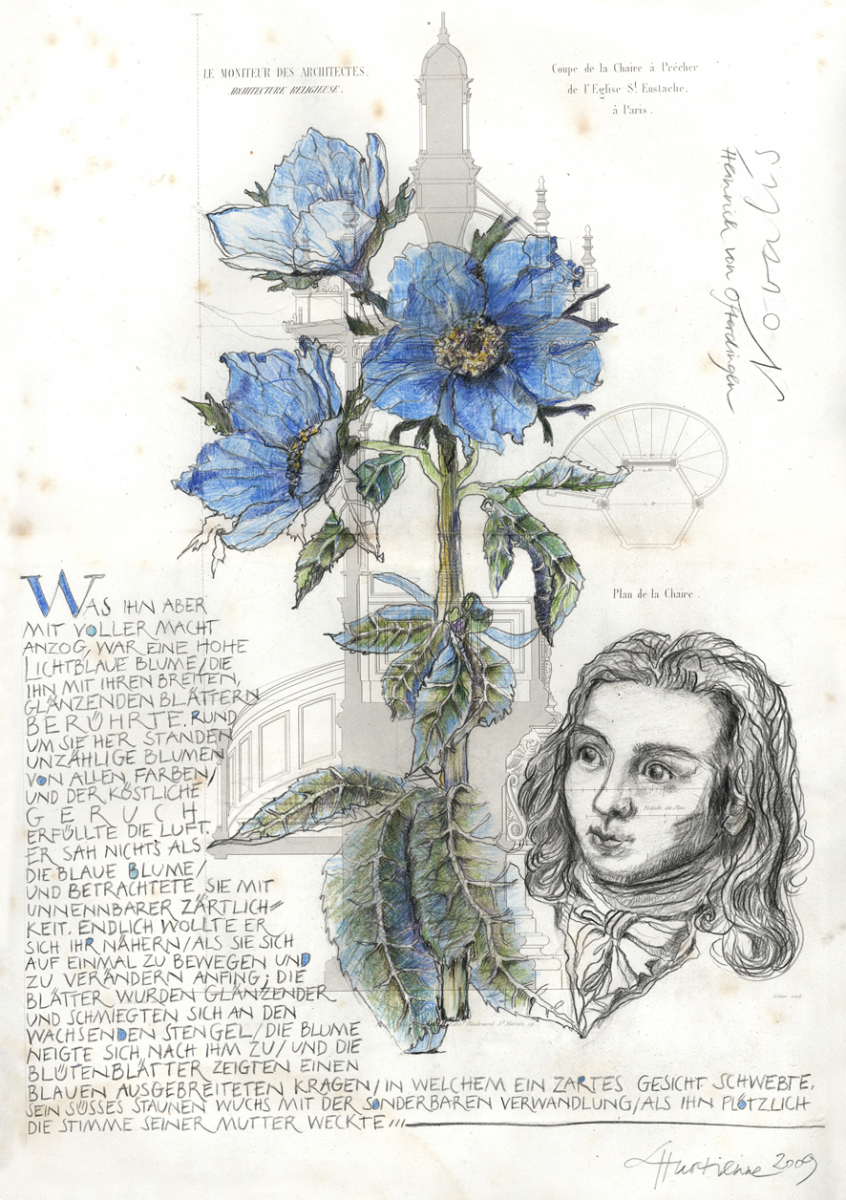 LE MONITEUR DES ARCHITECTES.
ARCHITECTURE RELIGIEUSE.
Coupe de la Chaire à Prêcher
de l'Eglise St. Eustache.
à Paris.
Novalis
Heinrich von Ofterdingen
Plan de la Chaire.
WAS IHN ABER
MIT VOLLER MACHT
ANZOG, WAR EINE HOHE
LICHTBLAUE BLUME/DIE
IHN MIT IHREN BREITEN,
GLÄNZENDEN BLÄTTERN
BERÜHRTE. RUND
UM SIE HER STANDEN
UNZÄHLIGE BLUMEN
VON ALLEN FARBEN/
UND DER KÖSTLICHE
GERUCH
ERFÜLLTE DIE LUFT.
ER SAH NICHTS ALS
DIE BLAUE BLUME/
UND BETRACHTETE SIE MIT
UNNENNBARER ZÄRTLICH=
KEIT. ENDLICH WOLLTE ER
SICH IHR NÄHERN/ALS SIE SICH
AUF EINMAL ZU BEWEGEN UND
ZU VERÄNDERN ANFING; DIE
BLÄTTER WURDEN GLÄNZENDER
UND SCHMIEGTEN SICH AN DEN
WACHSENDEN STENGEL/DIE BLUME
NEIGTE SICH NACH IHM ZU/UND DIE
BLÜTENBLÄTTER ZEIGTEN EINEN
BLAUEN AUSGEBREITETEN KRAGEN/IN WELCHEM EIN ZARTES GESICHT SCHWEBTE.
SEIN SÜSSES STAUNEN WUCHS MIT DER SONDERBAREN VERWANDLUNG/ALS IHN PLÖTZLICH
DIE STIMME SEINER MUTTER WECKTE ///
Hurtienne 2009